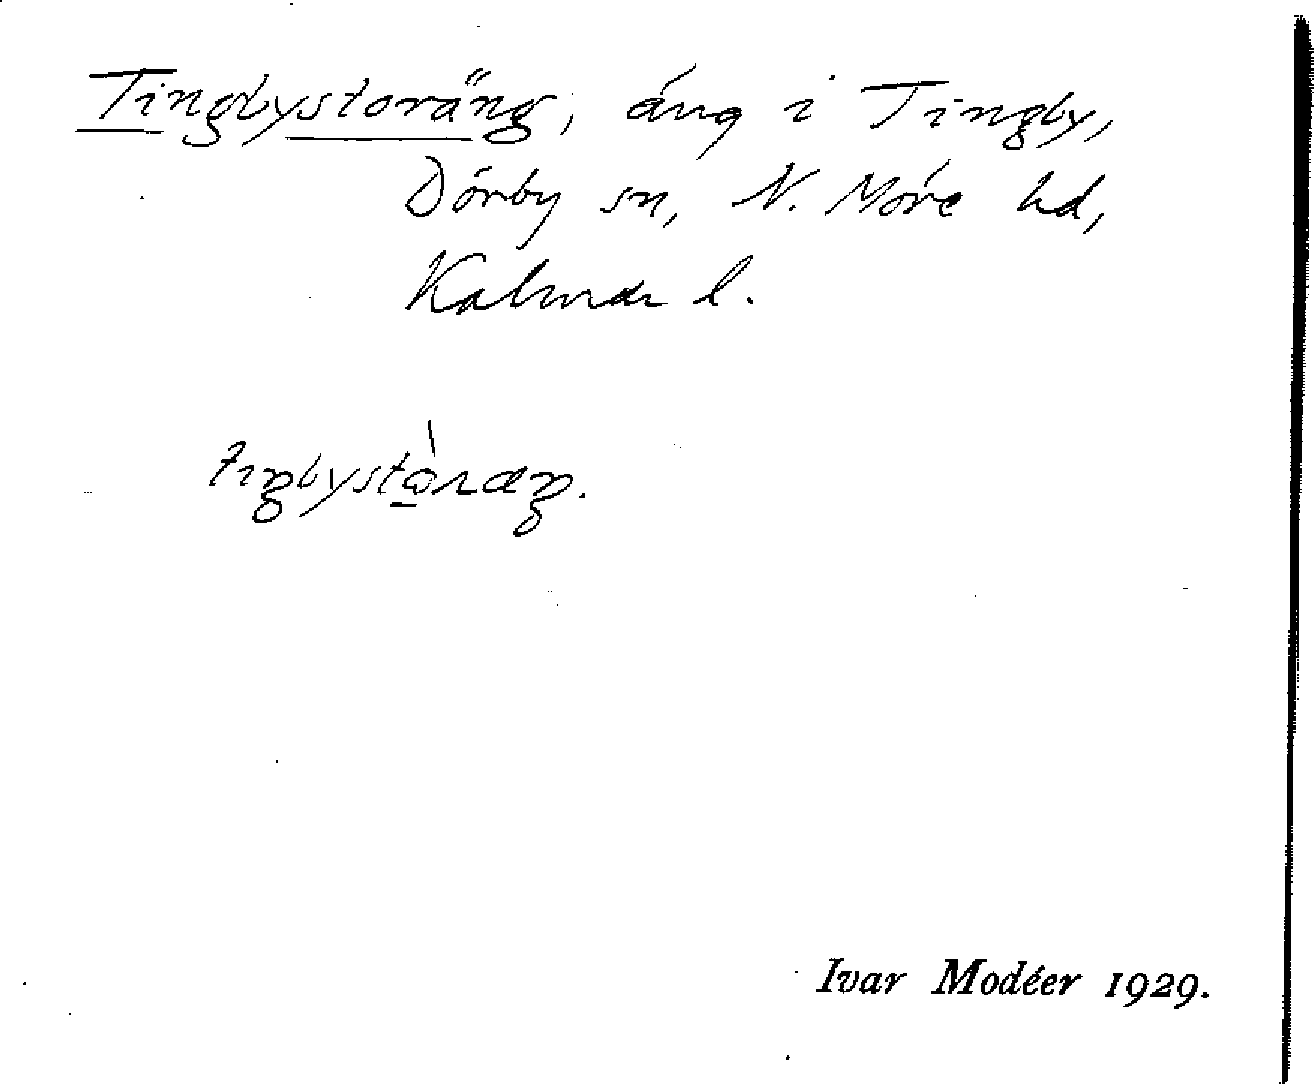 Tingbystoräng, äng i Tingby,
Dörby sn, N. Möre hd,
Kalmar l.
tıŋbystò̱ræŋ.
Ivar Modéer 1929.